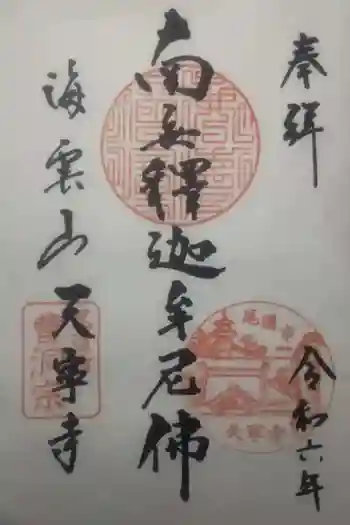 奉拜
令和六年
南無釋迦牟尼佛
海雲山天寧寺
尾道市
天寧寺